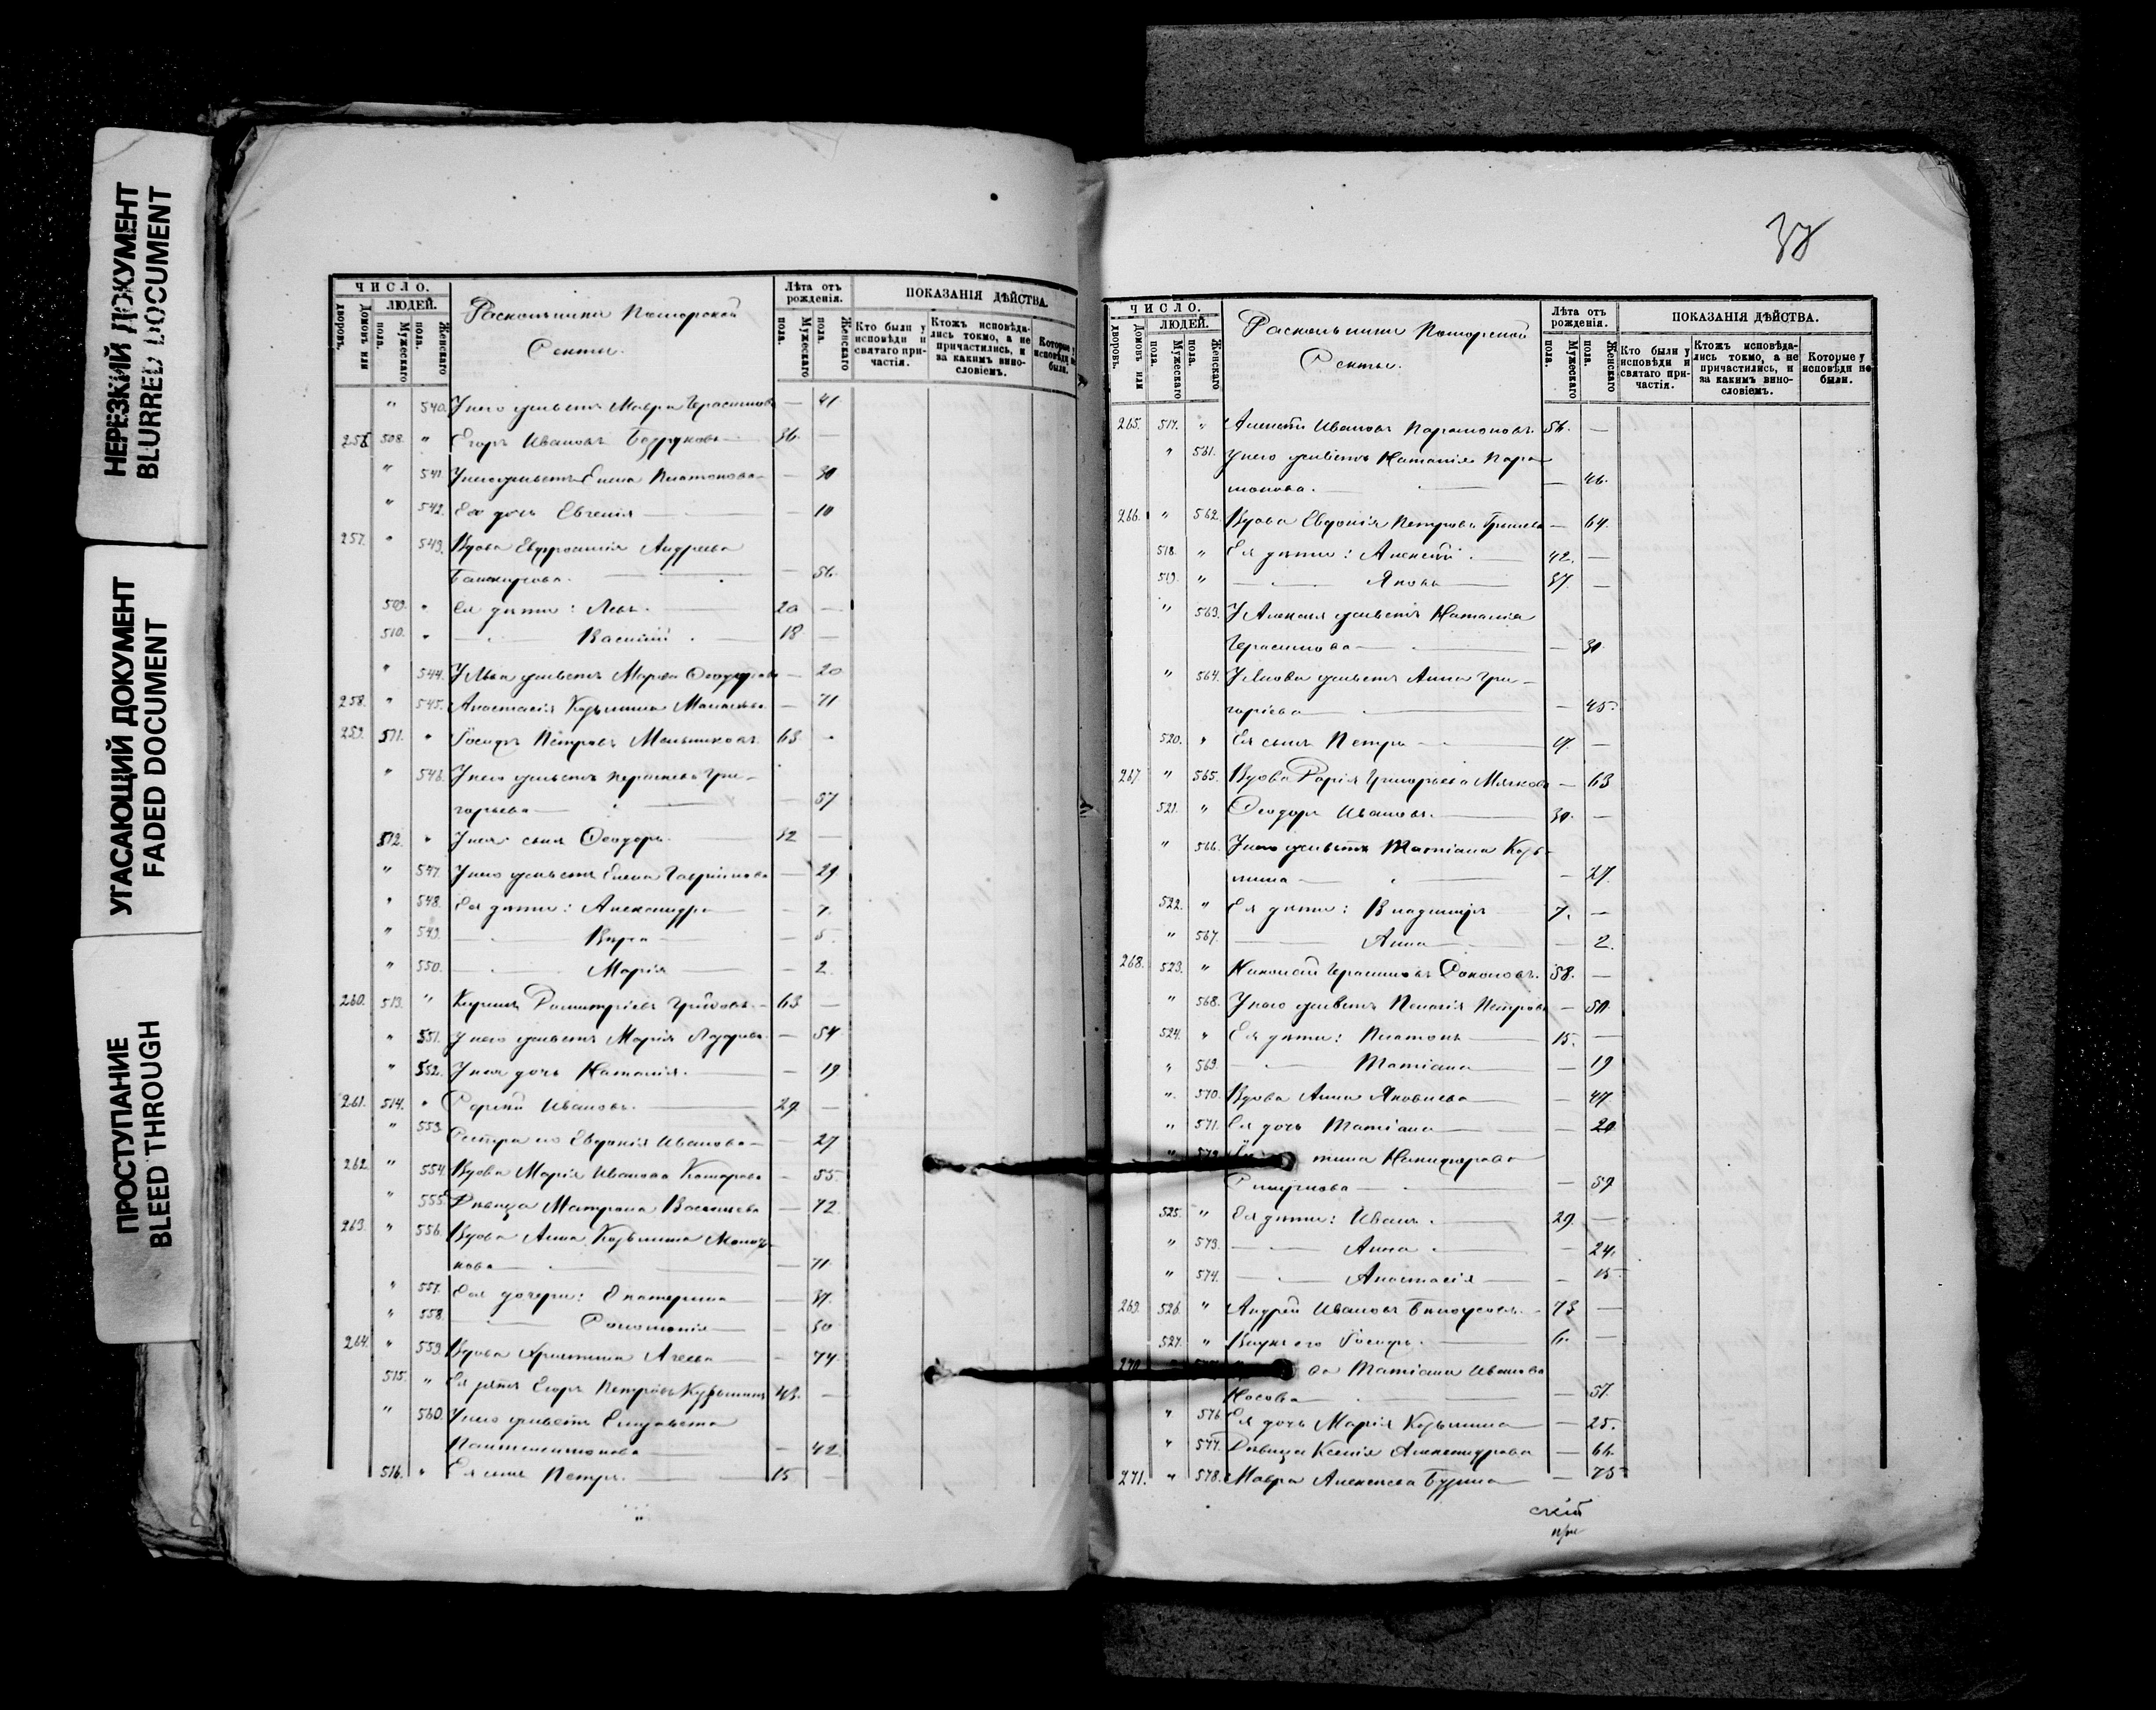 НЕРЕЗКИЙ ДОКУМЕНТ
BLURRED DOCUMENT
УГАСАЮЩИЙ ДОКУМЕНТ
FADED DOCUMENT
ПРОСТУПАНИЕ
BLEED THROUGH
ЧИСЛО.
ЛЮДЕЙ.
Домовъ или дворовъ.
Мужескаго пола.
Женскаго пола.
Раскольники Поморской
Секты.
Лѣта отъ рожденія.
Мужескаго пола.
Женскаго пола.
ПОКАЗАНІЯ ДѢЙСТВА.
Кто были у исповѣди и святаго причастія.
Ктожъ исповѣдались токмо, а не причастились, и за какимъ винословіемъ.
Которые у исповѣди не были.
" 540. У него живетъ Мавра Герасимова — 41
256 508. " Егоръ Ивановъ 36. —
" 541. У него живетъ Елена Платонова — 30
" 542. Ея дочь Евгенія — 10
257. " 543. Вдова Евфросинія Андреева
— 56.
509. " Ея дѣти: Левъ. 20 —
510. " Василій 18 —
" 544. У Льва живетъ Марѳа Ѳеодорова — 20
258. " 545. Анастасія Козьмина — 71
259. 511. " Іосифъ Петровъ Мельниковъ 63 —
" 546. У него живетъ Гри-
горьева — 57
512. " У нея сынъ Ѳеодоръ. 32 —
" 547. У него живетъ Елена Гаврилова — 29
" 548. Ея дѣти: Александра — 7.
" 549. Вѣра — 5.
" 550. Марія — 2.
260. 513. " 63 —
" 551. У него живетъ Марія Лазарева — 54
" 552. У нея дочь Наталія. — 19
261. 514. " Сергій Ивановъ. 29 —
" 553. Сестра его Евдокія Иванова — 27
262. " 554. Вдова Марія Иванова Комарова — 55.
" 555. Дѣвица Матрона Васильева — 72
263. " 556. Вдова Анна Козьмина
кова — 71
" 557. Ея дочери: Екатерина — 37.
" 558. Соломонія — 30
264. " 559. Вдова Христина Агеева — 74
515. " Ея зять Егоръ Петровъ Кузьминъ 43. —
" 560. У него живетъ Елизавета
Пантелеимонова — 42.
516. " Ея сынъ Петръ. 15
ЧИСЛО.
ЛЮДЕЙ.
Домовъ или дворовъ.
Мужескаго пола.
Женскаго пола.
Раскольники Поморской
Секты.
Лѣта отъ рожденія.
Мужескаго пола.
Женскаго пола.
ПОКАЗАНІЯ ДѢЙСТВА.
Кто были у исповѣди и святаго причастія.
Ктожъ исповѣдались токмо, а не причастились, и за какимъ винословіемъ.
Которые у исповѣди не были.
265. 517. " Алексѣй Ивановъ Парамоновъ. 56. —
" 561. У него живетъ Наталія Пара-
монова. — 46.
266. " 562. Вдова Евдокія Петрова — 64.
518. " Ея дѣти: Алексѣй 42. —
519. " Яковъ 37 —
" 563. У Алексѣя живетъ Наталія
Герасимова — 30.
" 564. У Якова живетъ Анна Гри-
горіева — 45.
520. " Ея сынъ Петръ —
267. " 565. Вдова Григорьева Мягкова — 63
521. " Ѳеодоръ Ивановъ. 30. —
" 566. У него живетъ Татіана Козь-
мина — 27.
522. " Ея дѣти: Владиміръ 7. —
" 567. Анна — 2.
268. 523. " Николай Герасимовъ Соколовъ. 58. —
" 568. У него живетъ Пелагія Петрова — 50
524. " Ея дѣти: Платонъ 15. —
" 569. Татіана — 19
" 570. Вдова Анна Яковлева — 47.
" 571. Ея дочь Татіана — 20
Никифорова
— 59
525. " Ея дѣти: Иванъ. 29. —
" 573. Анна — 24.
" 574. Анастасія — 15
269. 526. " Андрей Ивановъ Бѣлоусовъ. 73 —
527. " Внукъ его Іосифъ. 6. —
270. Татіана Иванова
Носова — 57.
" 576. Ея дочь Марія Козьмина — 25.
" 577. Дѣвица Ксенія Александрова — 66.
271. " 578. Мавра Алексѣева — 75